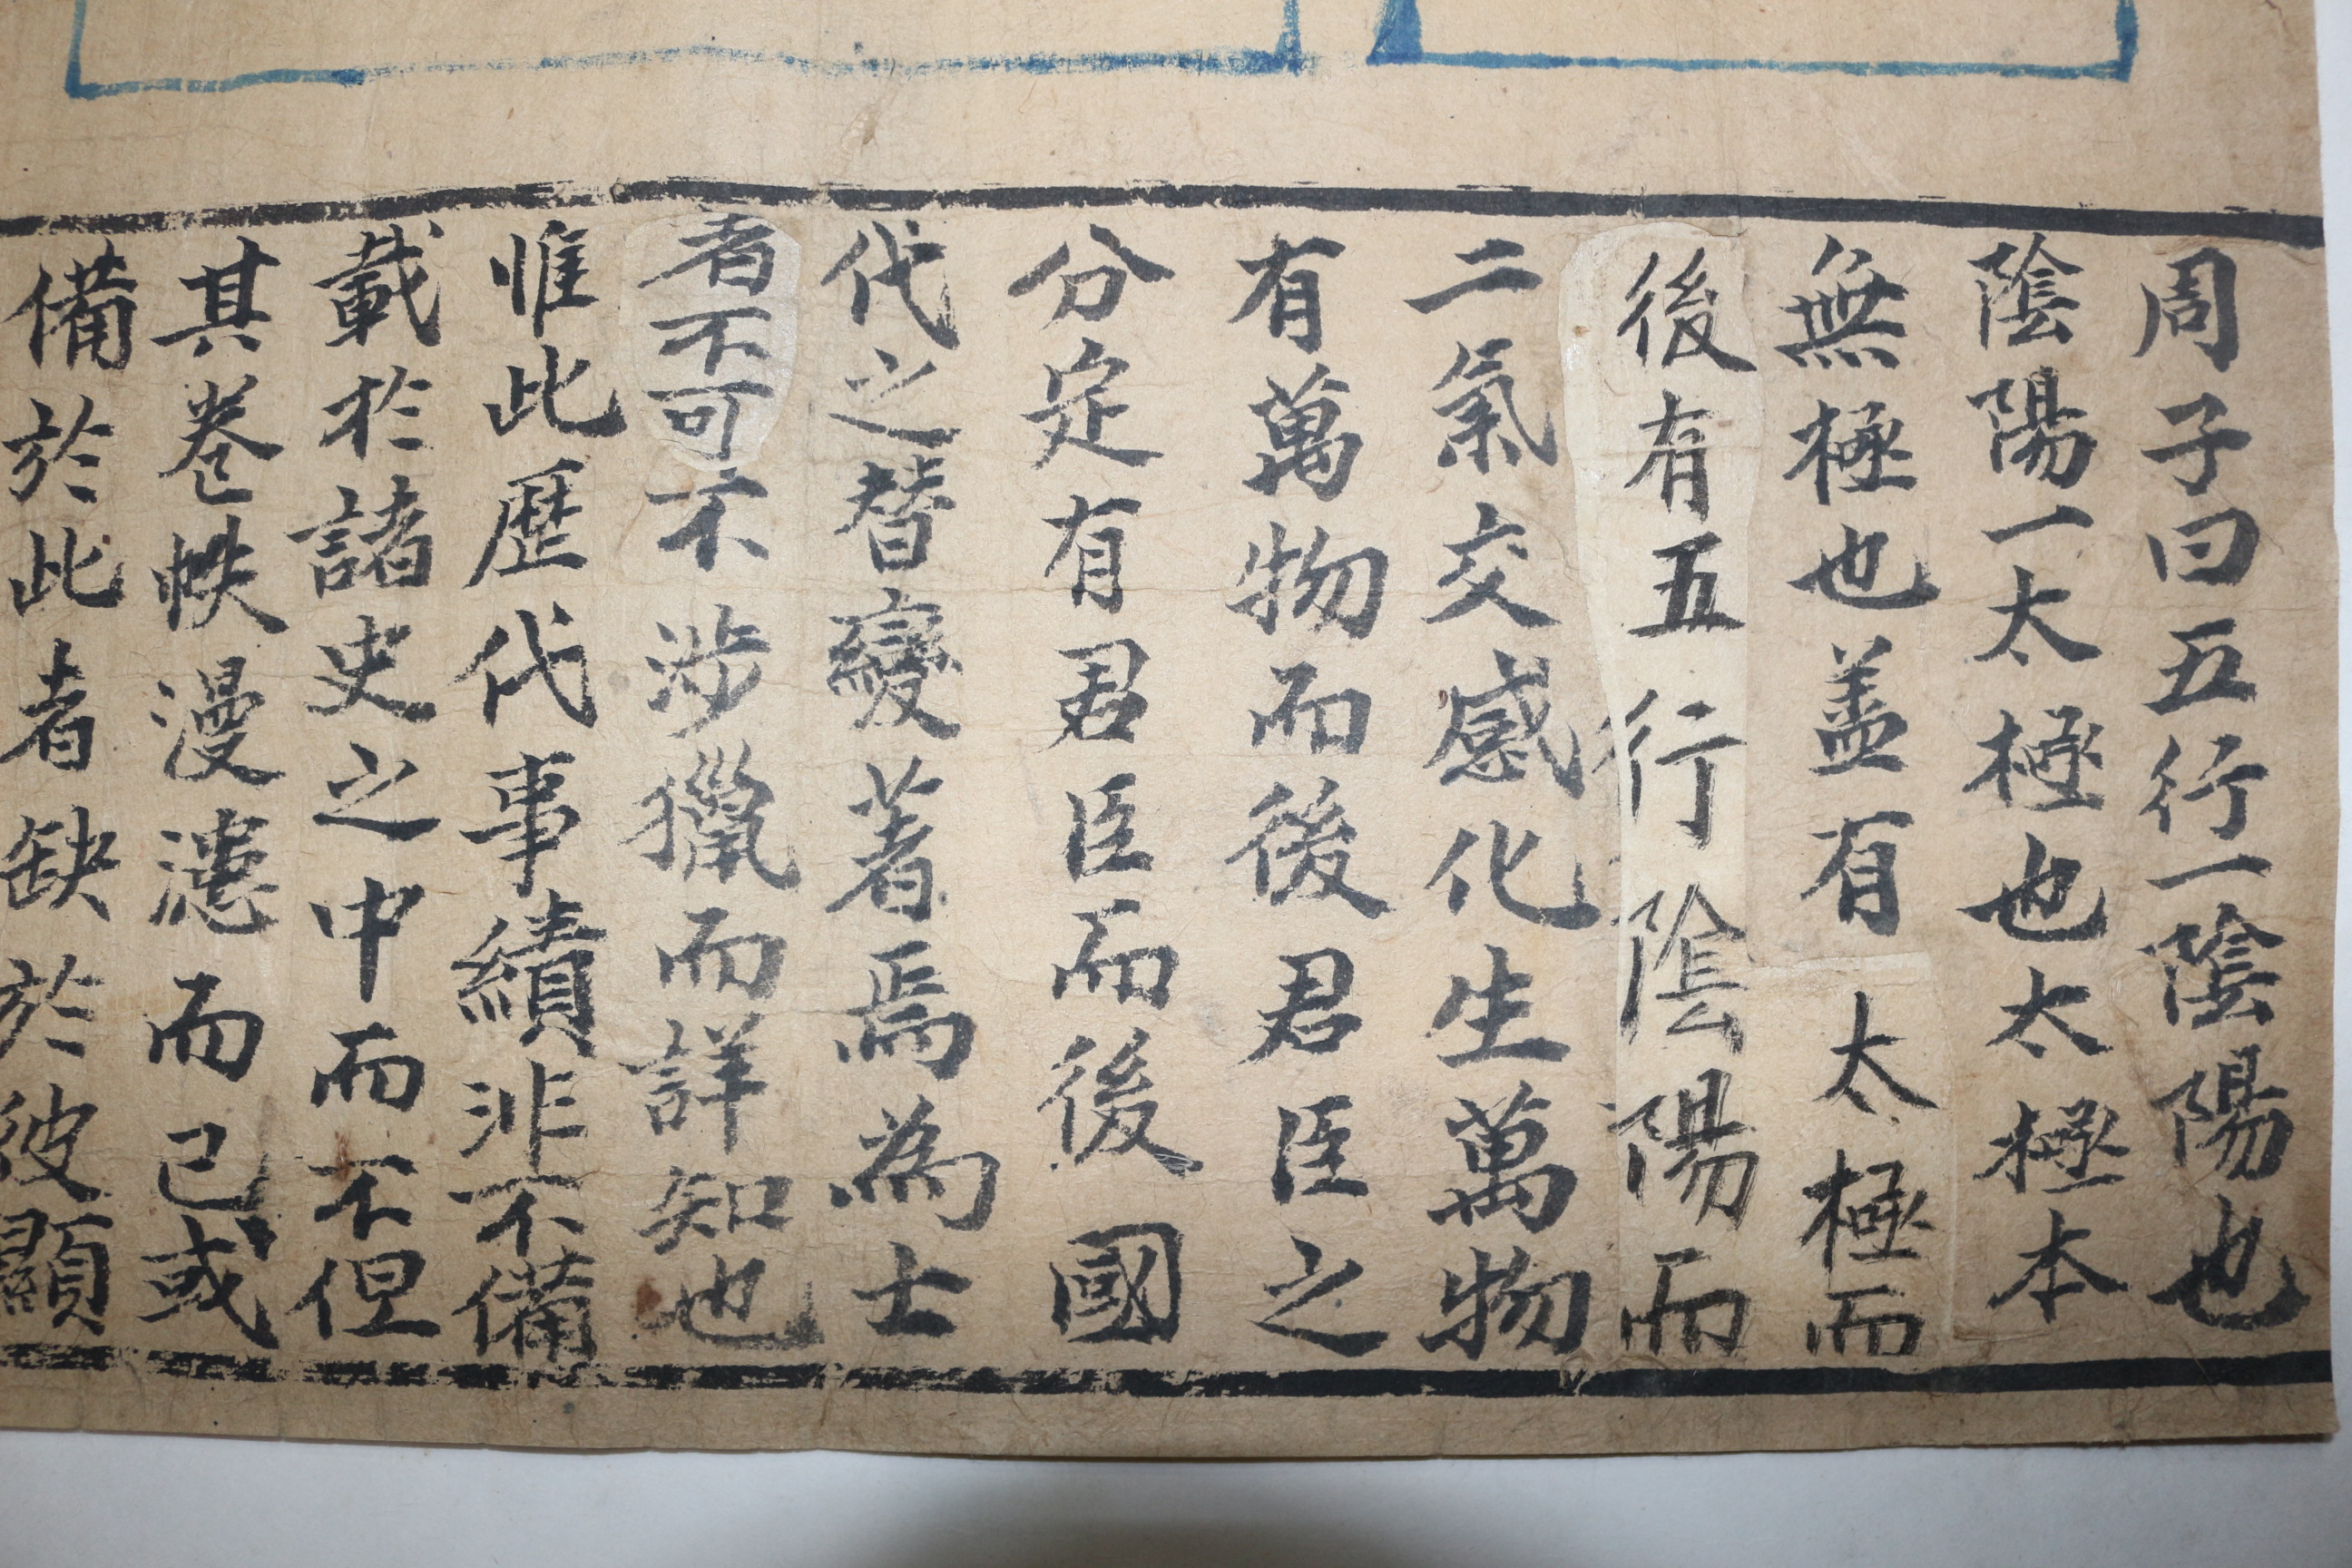 周子曰五行一陰陽也
陰陽一太極也太極本
無極也盖有太極而
後有五行陰陽而
二氣交感化生萬物
有萬物而後君臣之
分定有君臣而後國
代之替變著焉為士
者不可不涉獵而詳知也
惟此歷代事績非不備
載於諸史之中而不但
其卷帙漫漶而已或
備於此者缺於彼顯